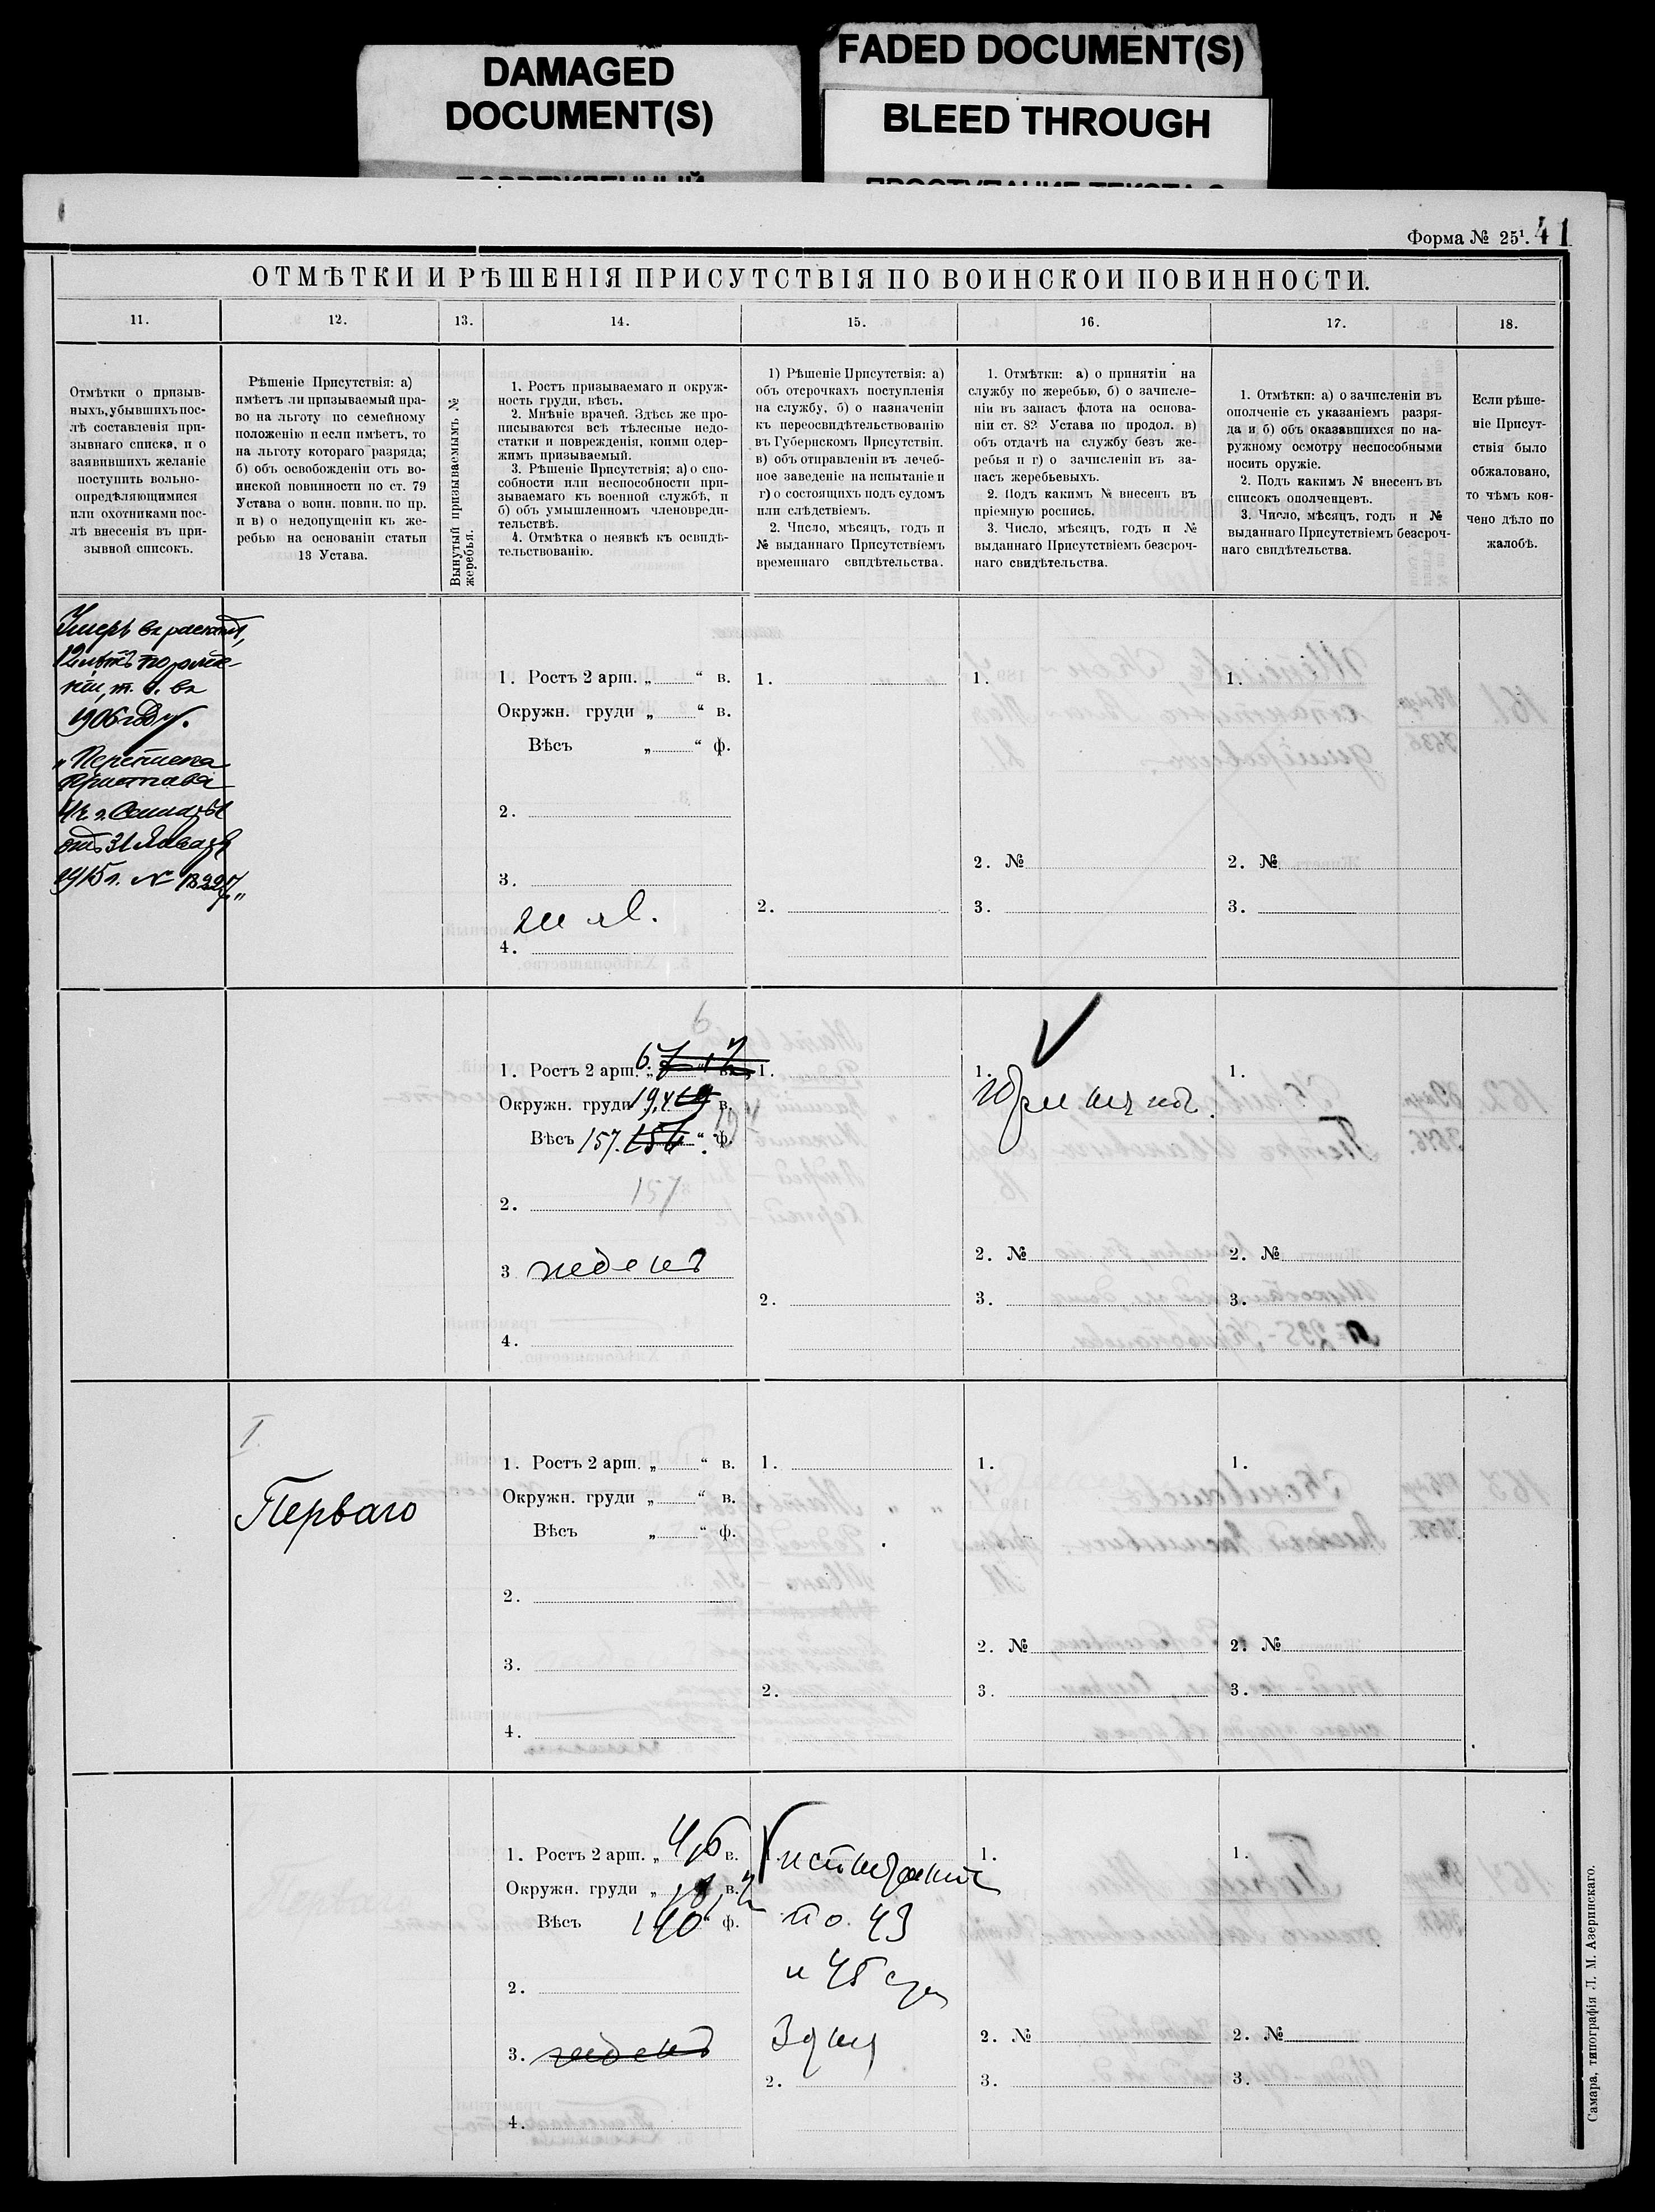 DAMAGED
DOCUMENT(S)
FADED DOCUMENT(S)
BLEED THROUGH
Форма № 25¹. 41
ОТМѢТКИ И РѢШЕНІЯ ПРИСУТСТВІЯ ПО ВОИНСКОЙ ПОВИННОСТИ.
11. 12. 13. 14. 15. 16. 17. 18.
Отмѣтки о призыв-
ныхъ, убывшихъ пос-
лѣ составленія при-
зывнаго списка, и о
заявившихъ желаніе
поступить вольно-
опредѣляющимися
или охотниками пос-
лѣ внесенія въ при-
зывной списокъ.
Рѣшеніе Присутствія: а)
имѣетъ ли призываемый пра-
во на льготу по семейному
положенію и если имѣетъ, то
на льготу котораго разряда;
б) объ освобожденіи отъ во-
инской повинности по ст. 79
Устава о воин. повин. по пр.
и в) о недопущеніи къ же-
ребью на основаніи статьи
13 Устава.
Вынутый призываемымъ №
жеребья.
1. Ростъ призываемаго и окруж-
ность груди, вѣсъ.
2. Мнѣніе врачей. Здѣсь же про-
писываются всѣ тѣлесные недо-
статки и поврежденія, коими одер-
жимъ призываемый.
3. Рѣшеніе Присутствія: а) о спо-
собности или неспособности при-
зываемаго къ военной службѣ, и
б) объ умышленномъ членовреди-
тельствѣ.
4. Отмѣтка о неявкѣ къ освидѣ-
тельствованію.
1) Рѣшеніе Присутствія: а)
объ отсрочкахъ поступленія
на службу, б) о назначеніи
къ переосвидѣтельствованію
въ Губернскомъ Присутствіи.
в) объ отправленіи въ лечеб-
ное заведеніе на испытаніе и
г) о состоящихъ подъ судомъ
или слѣдствіемъ.
2. Число, мѣсяцъ, годъ и
№ выданнаго Присутствіемъ
временнаго свидѣтельства.
1. Отмѣтки: а) о принятіи на
службу по жеребью, б) о зачисле-
ніи въ запасъ флота на основа-
ніи ст. 82 Устава по продол. в)
объ отдачѣ на службу безъ же-
ребья и г) о зачисленіи въ за-
пасъ жеребьевыхъ.
2. Подъ какимъ № внесенъ въ
пріемную роспись.
3. Число, мѣсяцъ, годъ и №
выданнаго Присутствіемъ безсроч-
наго свидѣтельства.
1. Отмѣтки: а) о зачисленіи въ
ополченіе съ указаніемъ разря-
да и б) объ оказавшихся по на-
ружному осмотру неспособными
носить оружіе.
2. Подъ какимъ № внесенъ въ
списокъ ополченцевъ.
3. Число, мѣсяцъ, годъ и №
выданнаго Присутствіемъ безсроч-
наго свидѣтельства.
Если рѣше-
ніе Присут-
ствія было
обжаловано,
то чѣмъ кон-
чено дѣло по
жалобѣ.
Умеръ въ
12
въ
1906 году.
Пристава
4 ч. г. Самары
отъ 31 Января
1915 г. №
1. Ростъ 2 арш. „ “ в.
Окружн. груди „ “ в.
Вѣсъ „ “ ф.
2.
3.
4.
1.
2.
1.
2. №
3.
1.
2. №
3.
1. Ростъ 2 арш. 6
Окружн. груди 19,4 в.
Вѣсъ 157. 156 “ ф.
2. 157
3 годенъ
4.
1.
2.
1. Принятъ.
2. №
3.
1.
2. №
3.
I
Перваго
1. Ростъ 2 арш. „ “ в.
Окружн. груди „ “ в.
Вѣсъ „ “ ф.
2.
3.
4.
1.
2.
1.
2. №
3.
1.
2. №
3.
1. Ростъ 2 арш. „ в.
Окружн. груди „ в.
Вѣсъ 140 “ ф.
2.
3. годенъ
4.
1. испытаніе
по 43
и 45 ст
2.
1.
2. №
3.
1.
2. №
3.
Самара, типографія Л. М. Азеринскаго.